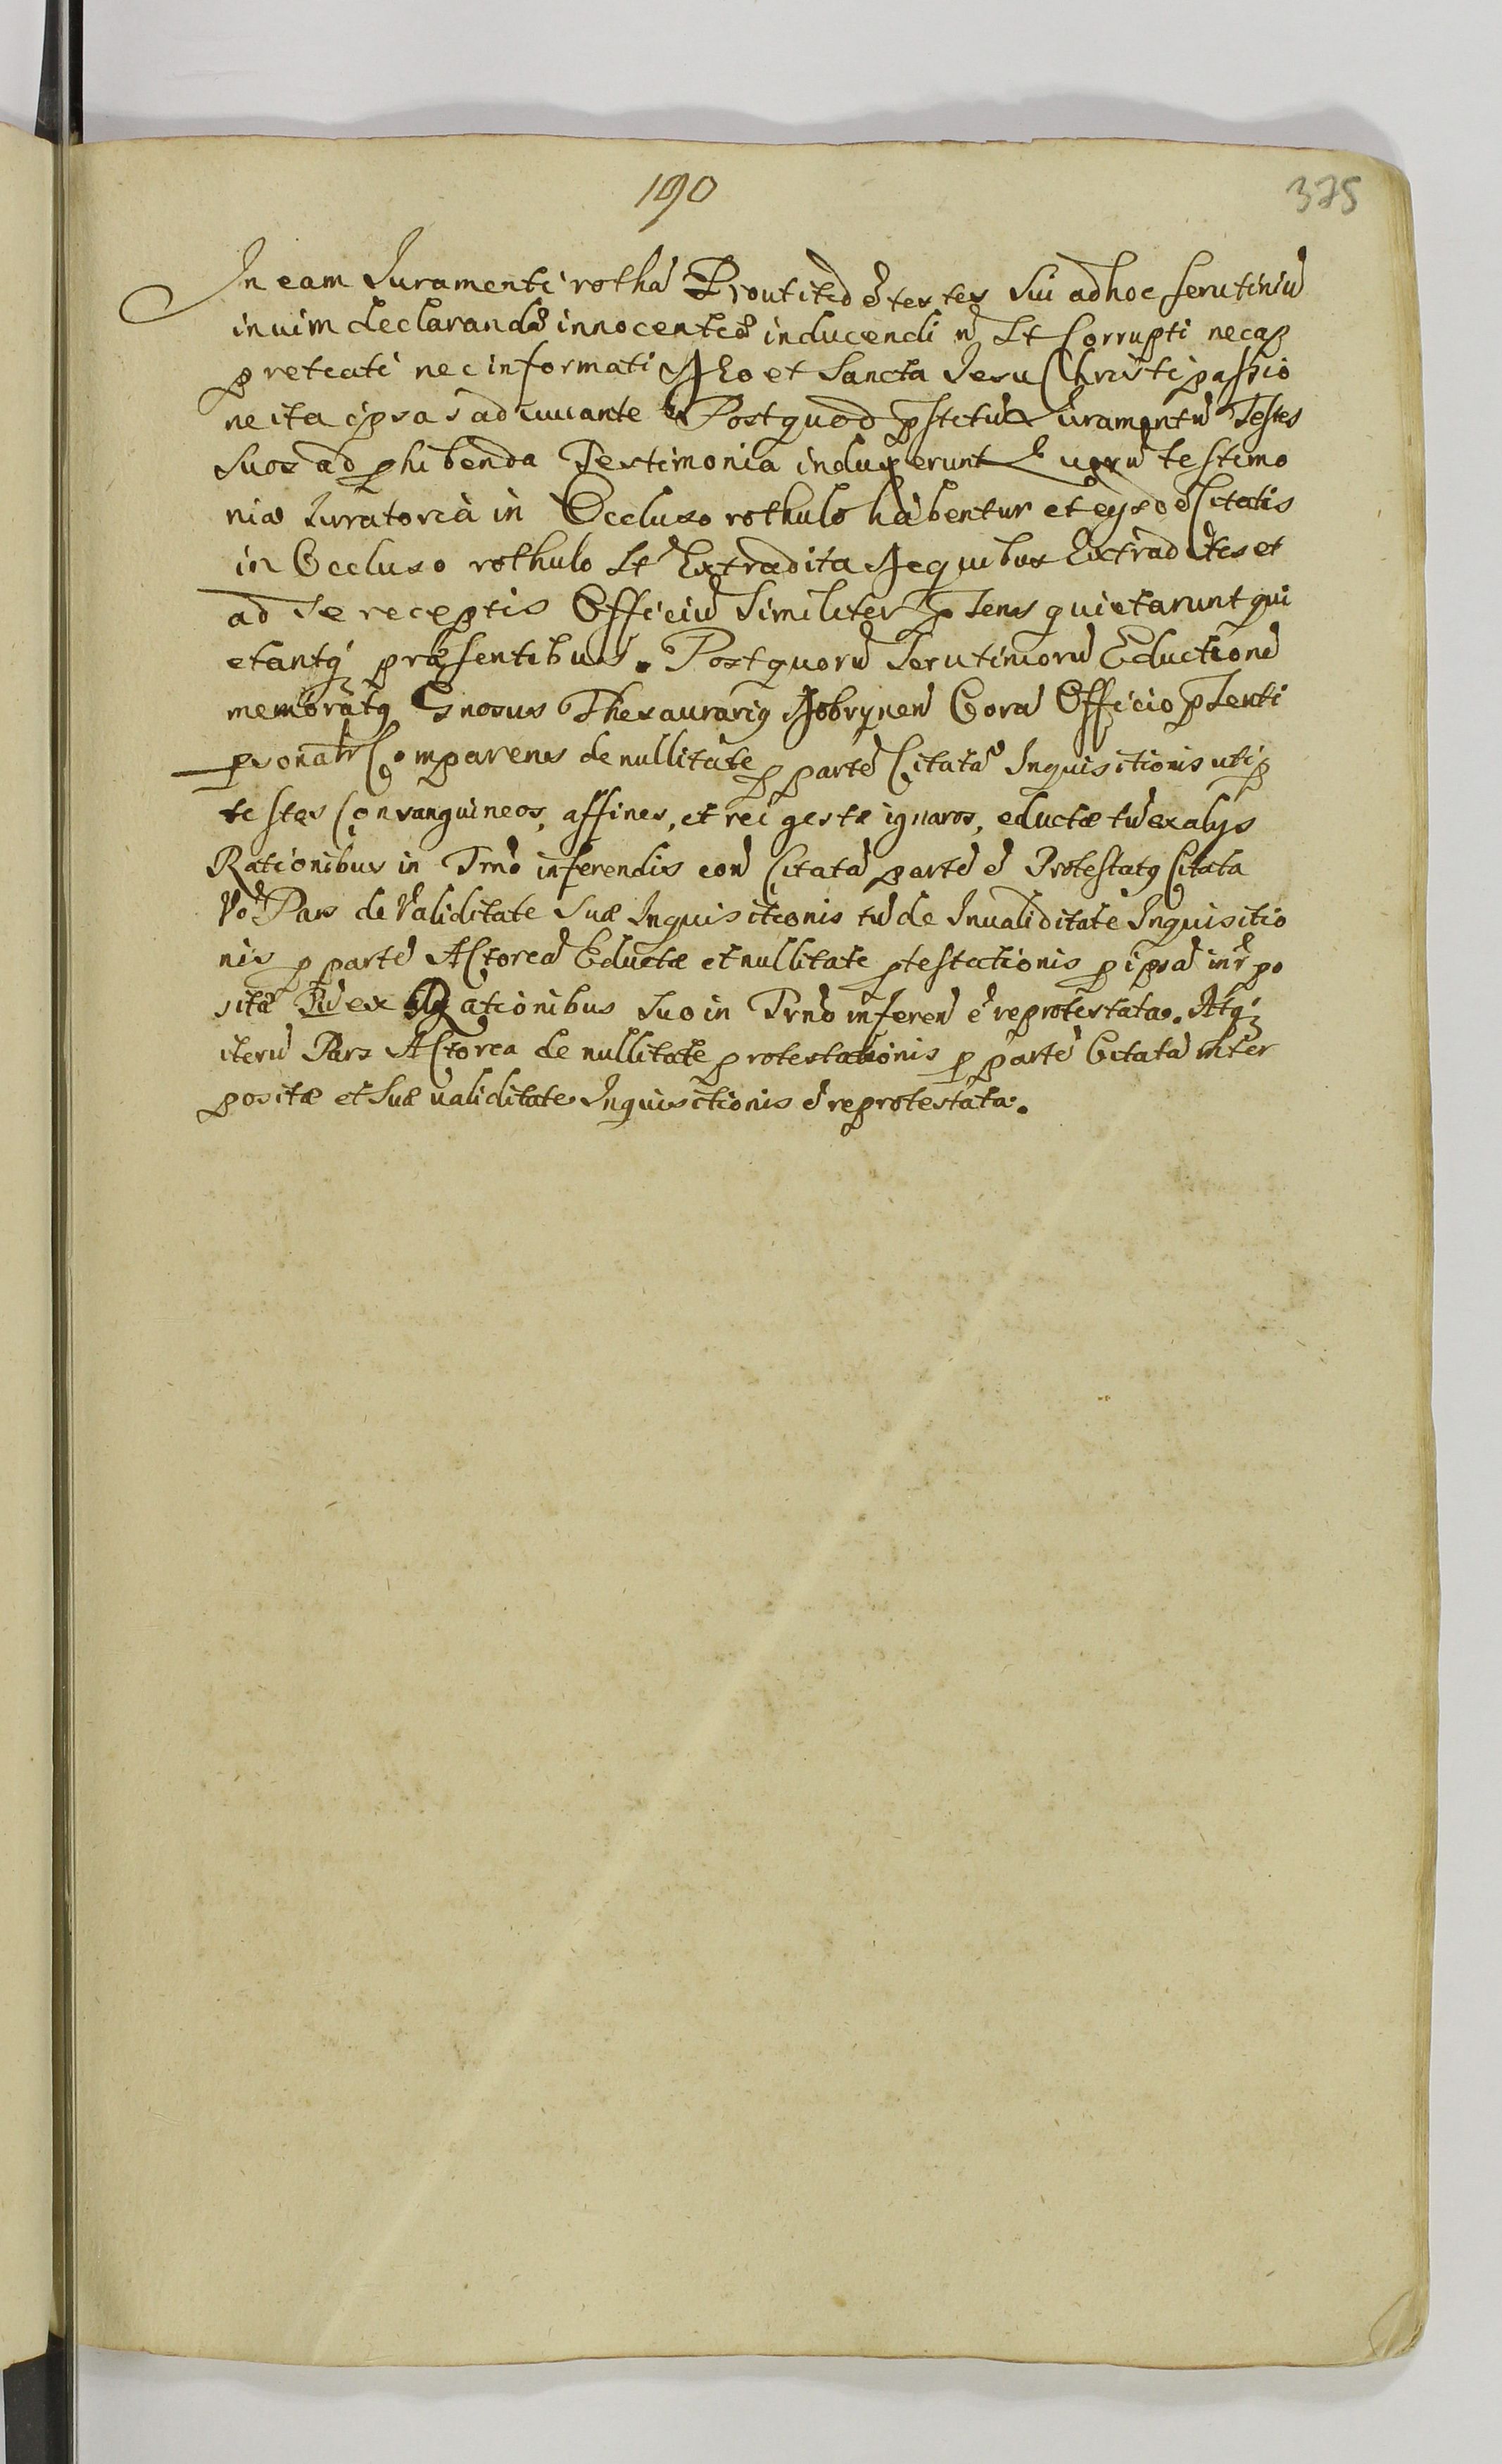 190
375
In eam Juramenti rothã Prout itidẽ testes sui ad hoc scrutiniũ
in uim declarandæ innocentiæ inducendi nõ st Corrupti neca
pretiati nec informati Deo et Sancta Jesu Christi passio
ne ita ipsas adiuuante Post quod pstitũ Juramentũ Testes
suos ad phibenda Testimonia induxerunt Quorũ testimo
nia Juratoria in Occluso rothulo habentur et eisdẽ Citatis
in Occluso rothulo st Extradita De quibus Extraditis et
ad se receptis Officiũ similiter psens quietarunt qui
etantq præsentibus. Post quorũ Scrutiniorũ Eductionẽ
memoratq Gnosus Thesaurariq Dobrynen Corã Officio psenti
psonatr Comparens de nullitate p partẽ Citatã Inquisitionis uti p
testes Consanguineos, affines, et rei gestæ ignaros, eductæ tũ ex alys
Rationibus in Trmo inferendis con Citatã partẽ ẽ Protestatq Citata
Vo Pars de Validitate suæ Inquisitionis tũ de Inualiditate Inquisitio
nis p partẽ Actoreã Eductæ et nullitate ptestationis p ipsã inr po
sitæ Tũ ex Rationibus suo in Trmo inferen ẽ reprotestata. Atq
iterũ Pars Actorea de nullitate protestationis p partẽ Citatã inter
positæ et suæ ualiditate Inquisitionis ẽ reprotestata.